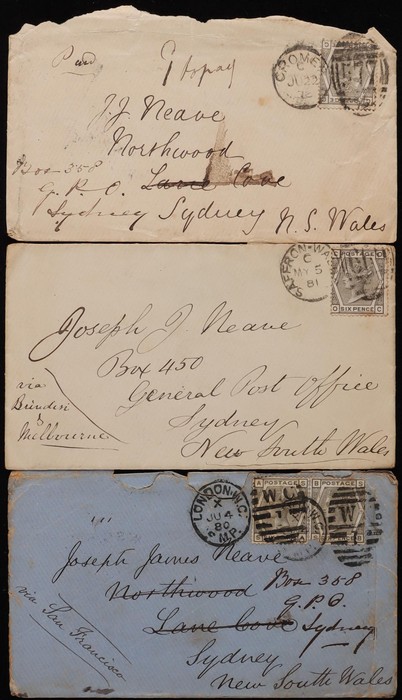 Paid
9 to pay
CROMER
C
JU 22
J. J. Neave
Northwood
Box 358
G. P. O. Lane Cove
Sydney Sydney N. S. Wales
SAFFRON-WAL
C
MY 5
81
POSTAGE
SIX PENCE
O C
Joseph J. Neave
Box 450
General Post Office
Sydney
New South Wales
via
Brindisi
&
Melbourne
LONDON·W.C
X
JU 4
80
M.P.
POSTAGE
POSTAGE
W.C
Joseph James Neave
Northwood Box 358
G. P. O.
Lane Cove Sydney
Sydney
New South Wales
via San Francisco